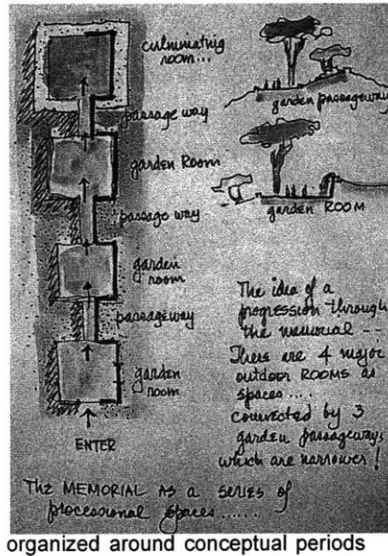 culminating
room...
passage way
garden Room
passage way
garden
room
passageway
garden
room
ENTER
garden passageway
garden ROOM
The idea of a
progression through
the memorial --
There are 4 major
outdoor ROOMS as
spaces ....
connected by 3
garden passageways
which are narrower!
The MEMORIAL AS A SERIES OF
processional spaces......
organized around conceptual periods